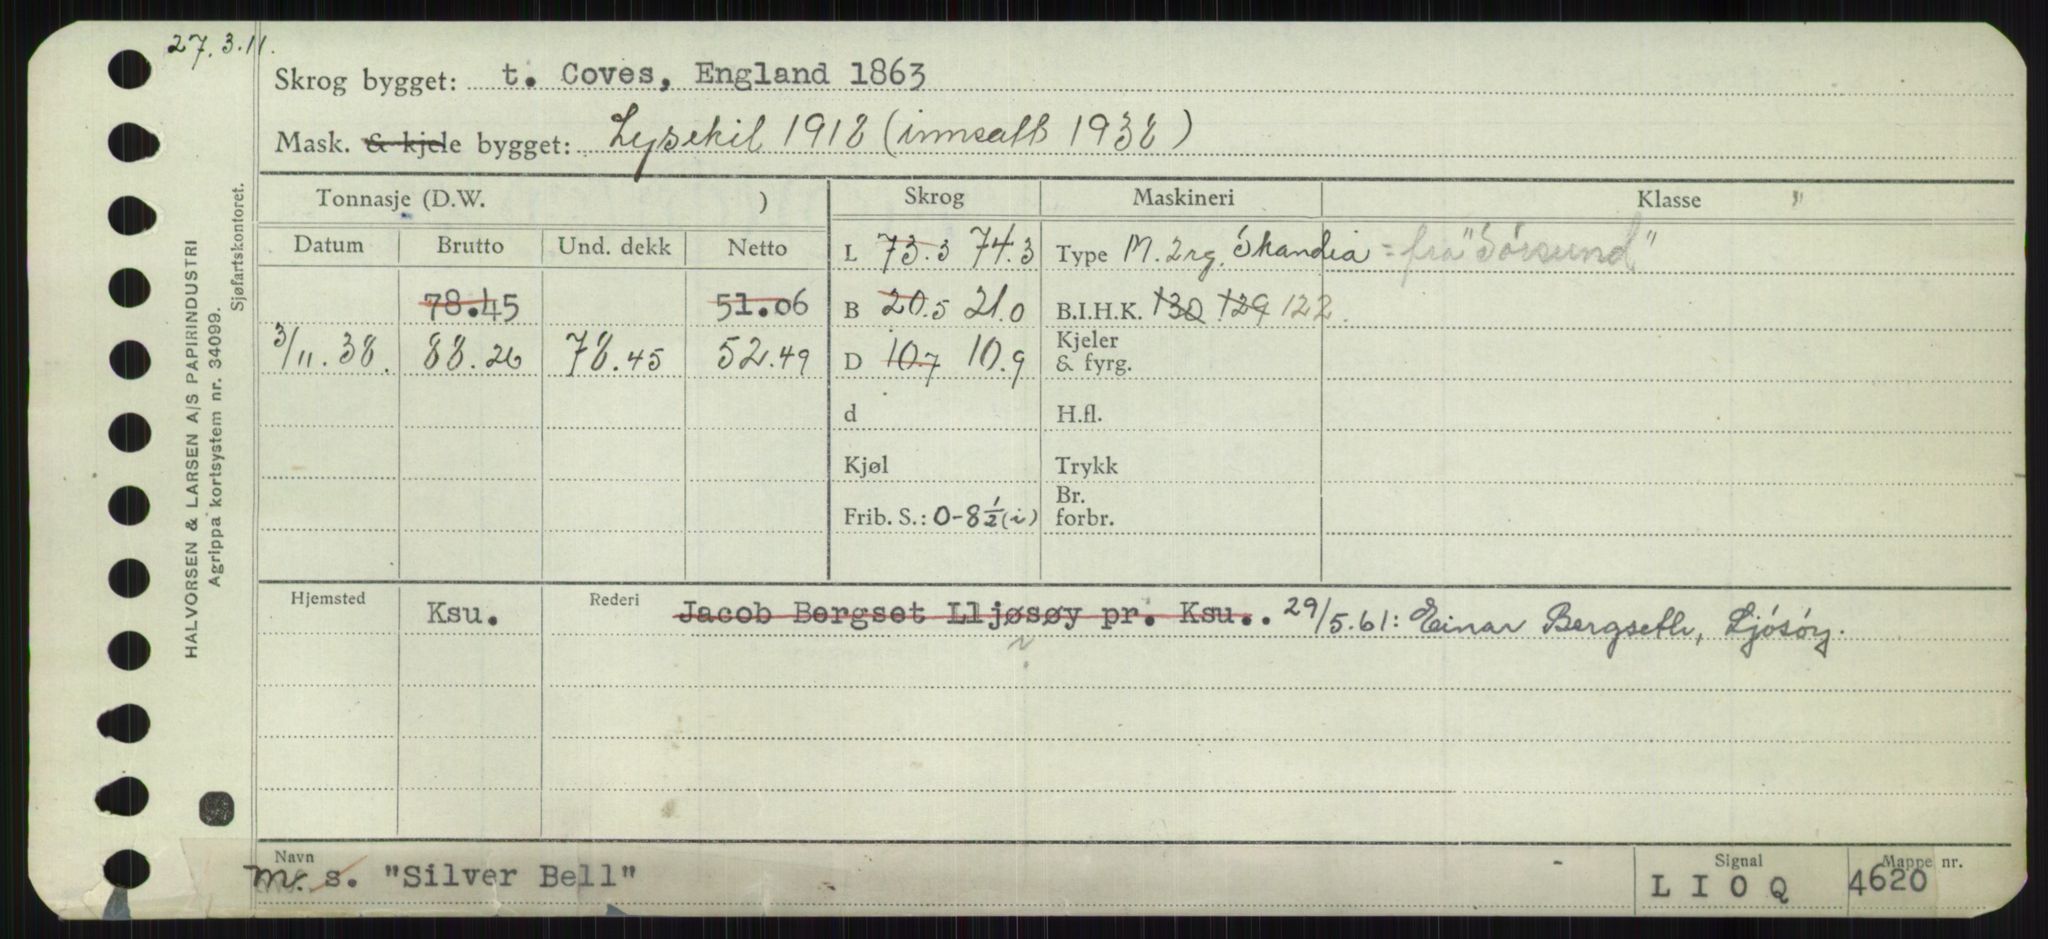 27.3.11.
Skrog bygget: t. Coves, England 1863
Mask. & kjele bygget: Lysekil 1918 (innsatt 1938)
Tonnasje (D.W. )
Skrog
Maskineri
Klasse "
Datum Brutto Und. dekk Netto
L 73.3 74.3
Type M. 2 rg. Skandia = fra "Sörsund"
78.45 51.06
B 20.5 21.0
B.I.H.K. 130 129 122.
3/11.38. 88.26 78.45 52.49
D 10.7 10.9
Kjeler
& fyrg.
d
H.fl.
Kjøl
Trykk
Frib. S.: 0-8½(i)
Br.
forbr.
Hjemsted Ksu.
Rederi Jacob Bergset Lljøsøy pr. Ksu.. 29/5.61: Einar Bergseth, Ljósöy.
Navn
m. s. "Silver Bell"
Signal
L I O Q
Mappe nr.
4620
HALVORSEN & LARSEN A/S PAPIRINDUSTRI
Agrippa kortsystem nr. 34099.
Sjøfartskontoret.